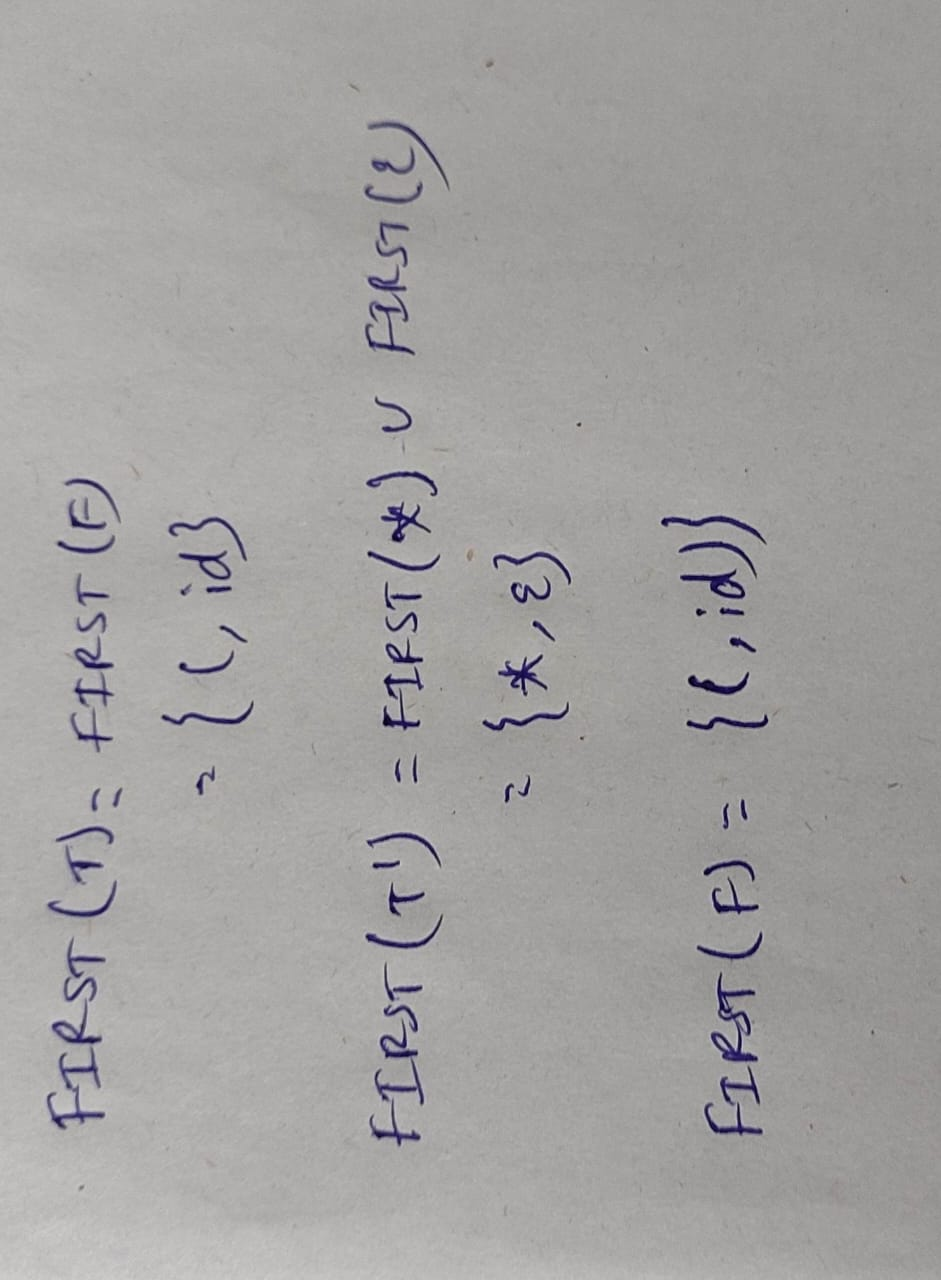 FIRST(T) = FIRST(F)
= {(, id}
FIRST(T') = FIRST(*) ∪ FIRST(ε)
= {*, ε}
FIRST(F) = {(, id)}